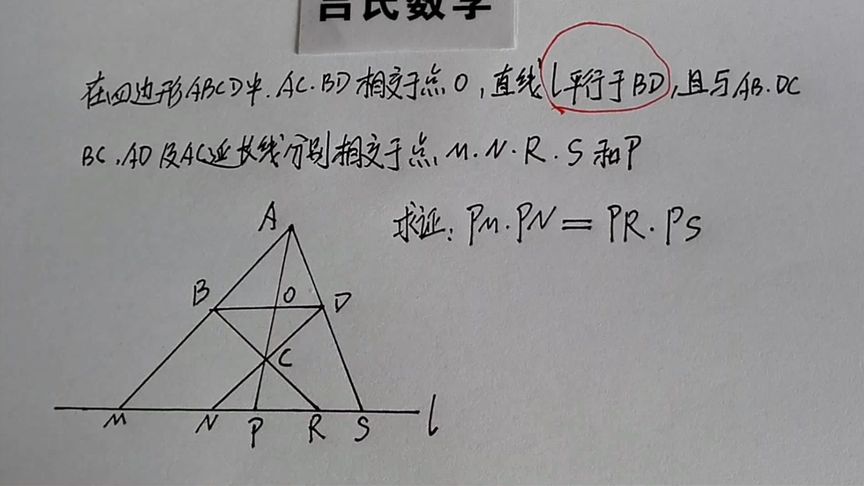 吕氏数学
在四边形ABCD中.AC.BD相交于点O,直线l平行于BD,且与AB.DC
BC.AD及AC延长线分别相交于点M.N.R.S和P
求证:PM.PN=PR.PS
A
B O D
C
M N P R S l